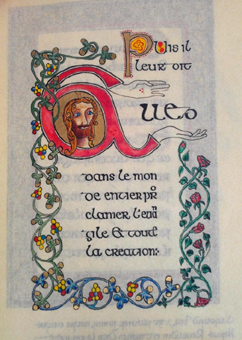 Puis il
leur dit
Allez
dans le mon
de entier pro
clamer l'évan
gile à toute
la création